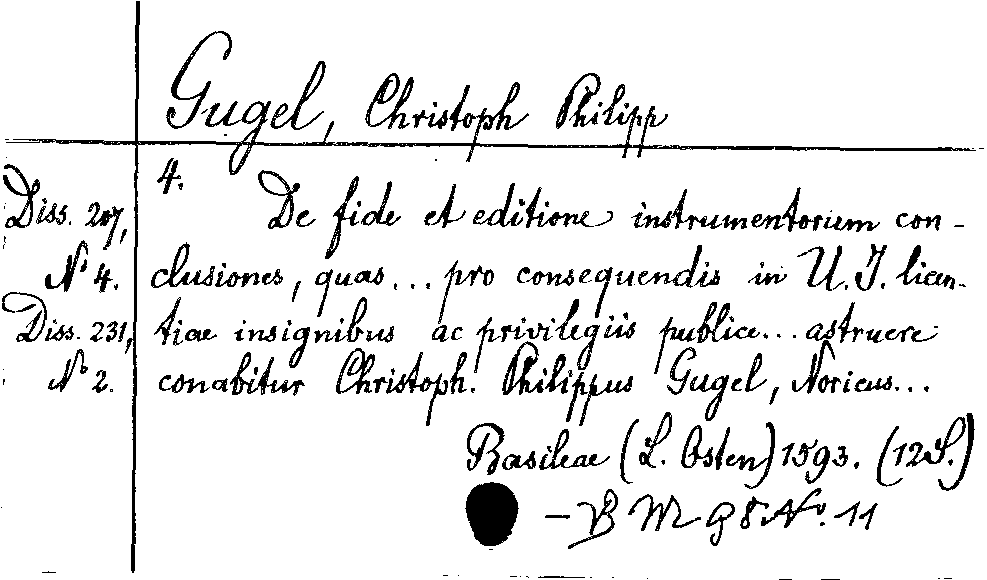 Gugel, Christoph Philipp
4.
Diss. 207,
No 4.
Diss. 231,
No 2.
De fide et editione instrumentorum con-
clusiones, quas... pro consequendis in U. J. licen-
tiae insignibus ac privilegiis publice... astruere
conabitur Christoph. Philippus Gugel, Noricus...
Basileae (L. Osten) 1593. (12 S.)
- B M 98 No. 11